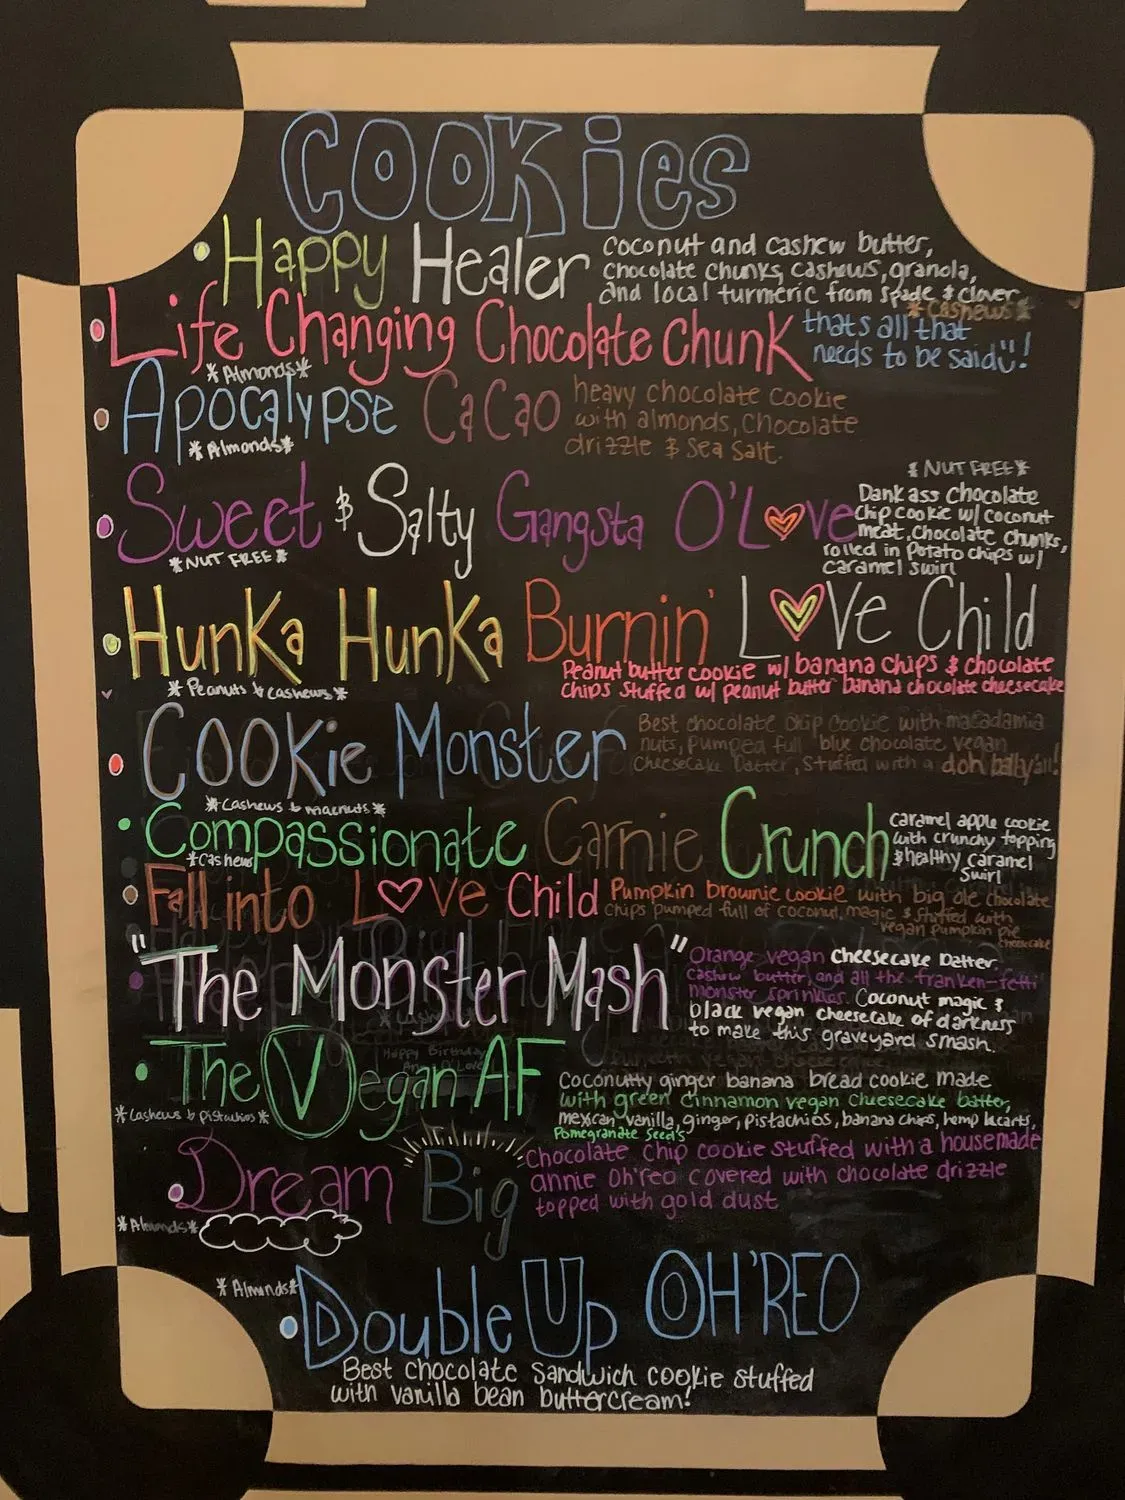 COOKies
Happy Healer
coconut and cashew butter,
chocolate chunks, cashews, granola,
and local turmeric from spade & clover
*Cashews*
Life Changing Chocolate Chunk
thats all that
needs to be said!
*Almonds*
Apocalypse CaCao
heavy chocolate cookie
with almonds, chocolate
drizzle & sea salt.
*Almonds*
*NUT FREE*
Sweet & Salty Gangsta O'Love
Dank ass chocolate
chip cookie w/ coconut
meat, chocolate chunks,
rolled in potato chips w/
caramel swirl
*NUT FREE*
HunKa HunKa Burnin' Love Child
Peanut butter cookie w/ banana chips & chocolate
chips stuffed w/ peanut butter banana chocolate cheesecake
*Peanuts & Cashews*
COOKie Monster
Best chocolate chip cookie with macadamia
nuts, pumped full blue chocolate vegan
cheesecake batter, stuffed with a doh ball y'all!
*Cashews & macnuts*
Compassionate Carnie Crunch
caramel apple cookie
with crunchy topping
& healthy caramel
swirl
*Cashews
Fall into Love Child
Pumpkin brownie cookie with big ole chocolate
chips pumped full of coconut magic & stuffed with
vegan pumpkin pie
cheesecake
"The Monster Mash"
Orange vegan cheesecake batter
cashew butter, and all the franken-fetti
monster sprinkles. Coconut magic &
black vegan cheesecake of darkness
to make this graveyard smash.
Happy Birthday
The Vegan AF
Coconutty ginger banana bread cookie made
with green cinnamon vegan cheesecake batter,
mexican vanilla, ginger, pistachios, banana chips, hemp hearts,
Pomegranate Seeds
*Cashews & Pistachios*
Dream Big
Chocolate chip cookie stuffed with a housemade
annie Oh'reo covered with chocolate drizzle
topped with gold dust
*Almonds*
*Almonds*
Double Up OH'REO
Best chocolate sandwich cookie stuffed
with vanilla bean buttercream!